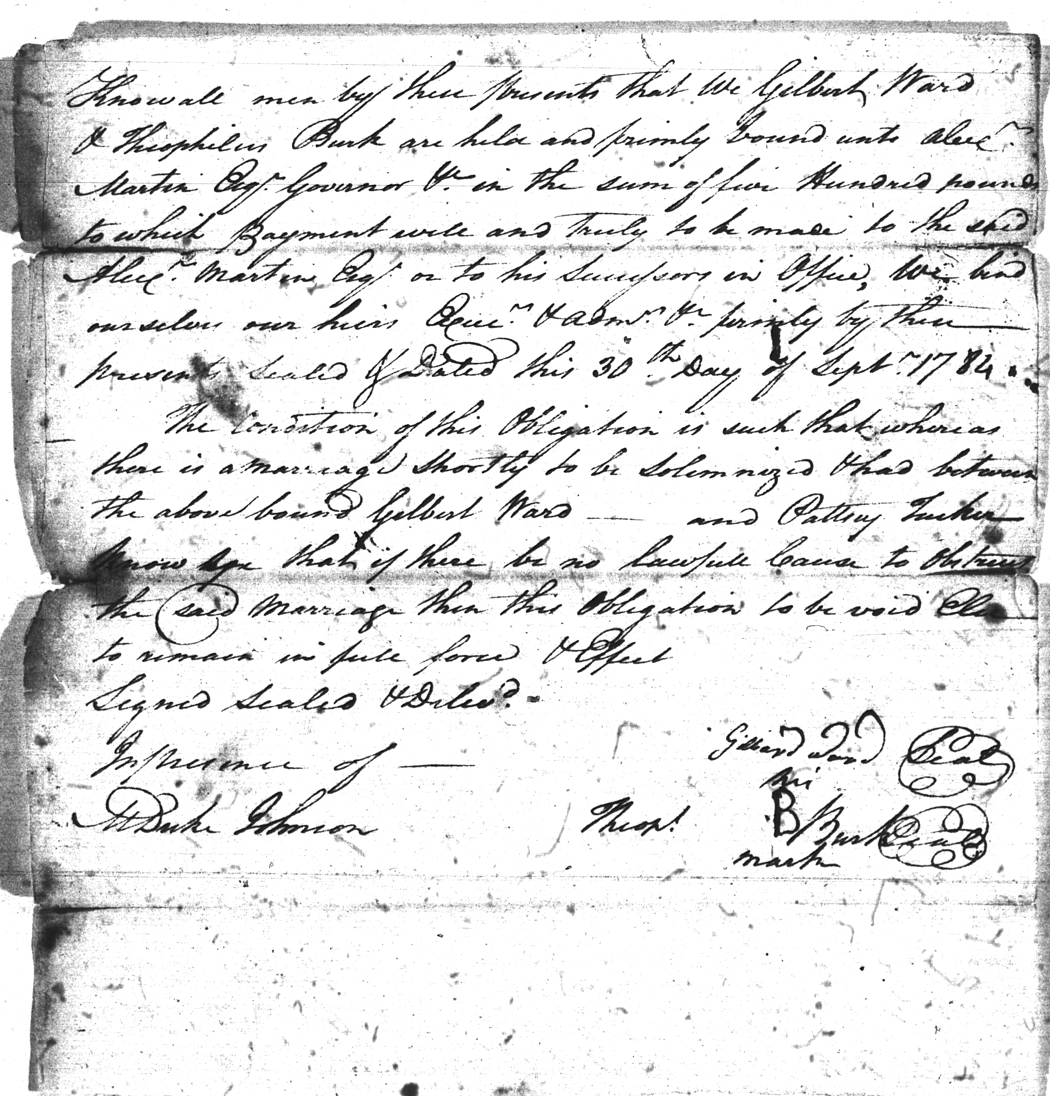 Know all men by these presents that We Gilbert Ward
& Theophilus Burk are held and firmly bound unto Alexr.
Martin Esqr. Governor &c in the sum of five Hundred pounds
to which Payment well and truly to be made to the said
Alexr. Martin Esqr or to his Successors in Office, We bind
ourselves our heirs Execrs. & admrs. &c firmly by these
presents Sealed & Dated this 30th Day of Septr. 1784
The Condition of this Obligation is such that whereas
there is a marriage shortly to be Solemnized & had between
the above bound Gilbert Ward — and Pattsey Tucker
Know ye that if there be no lawfull Cause to Obstruct
the said Marriage then this Obligation to be void Else
to remain in full force & Effect
Signed Sealed & Delivd.
In presence of —
Gilbard Ward Seal
his
M Duke Johnson Theopl. B Burk Seal
mark